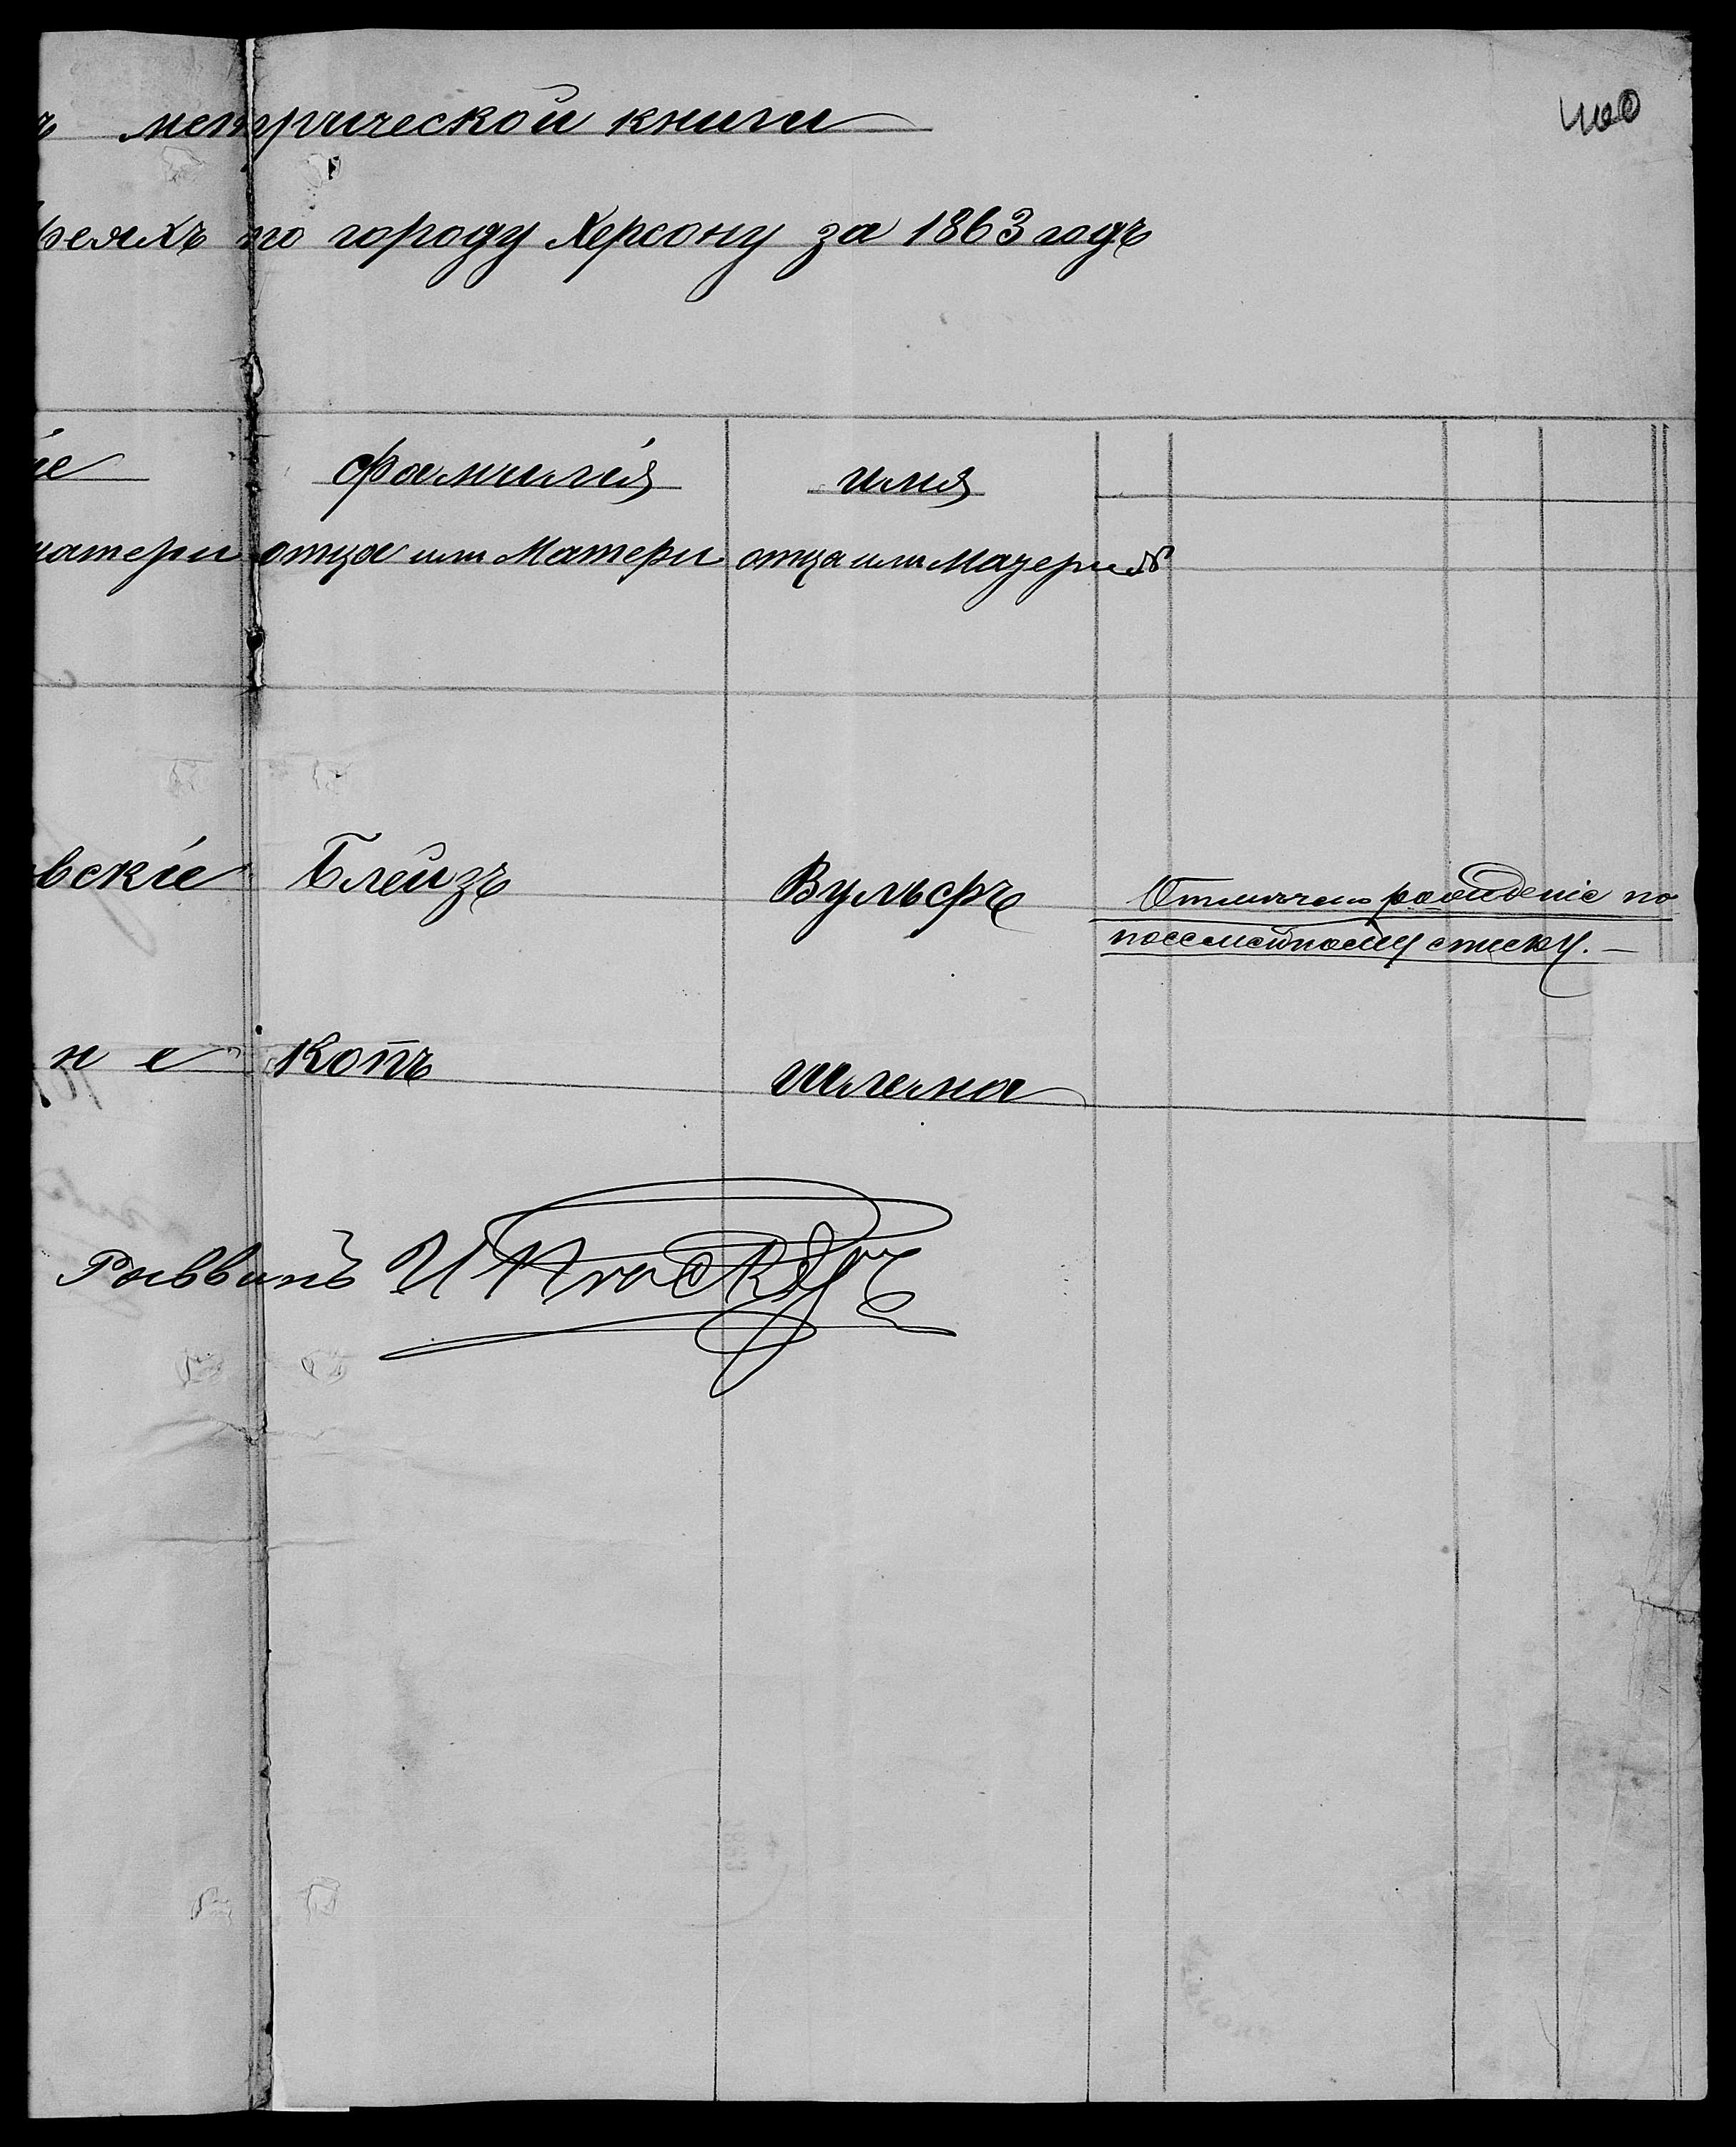 400
ъ метрической книги
реяхъ по городу Херсону за 1863 годъ
іе фамилія имя
матери отца или Матери отца или Матери №
вскіе Блейзъ Вульфъ Отмѣчено рожденіе по
посемейному списку. —
н е Копъ Шлема
Раввинъ И